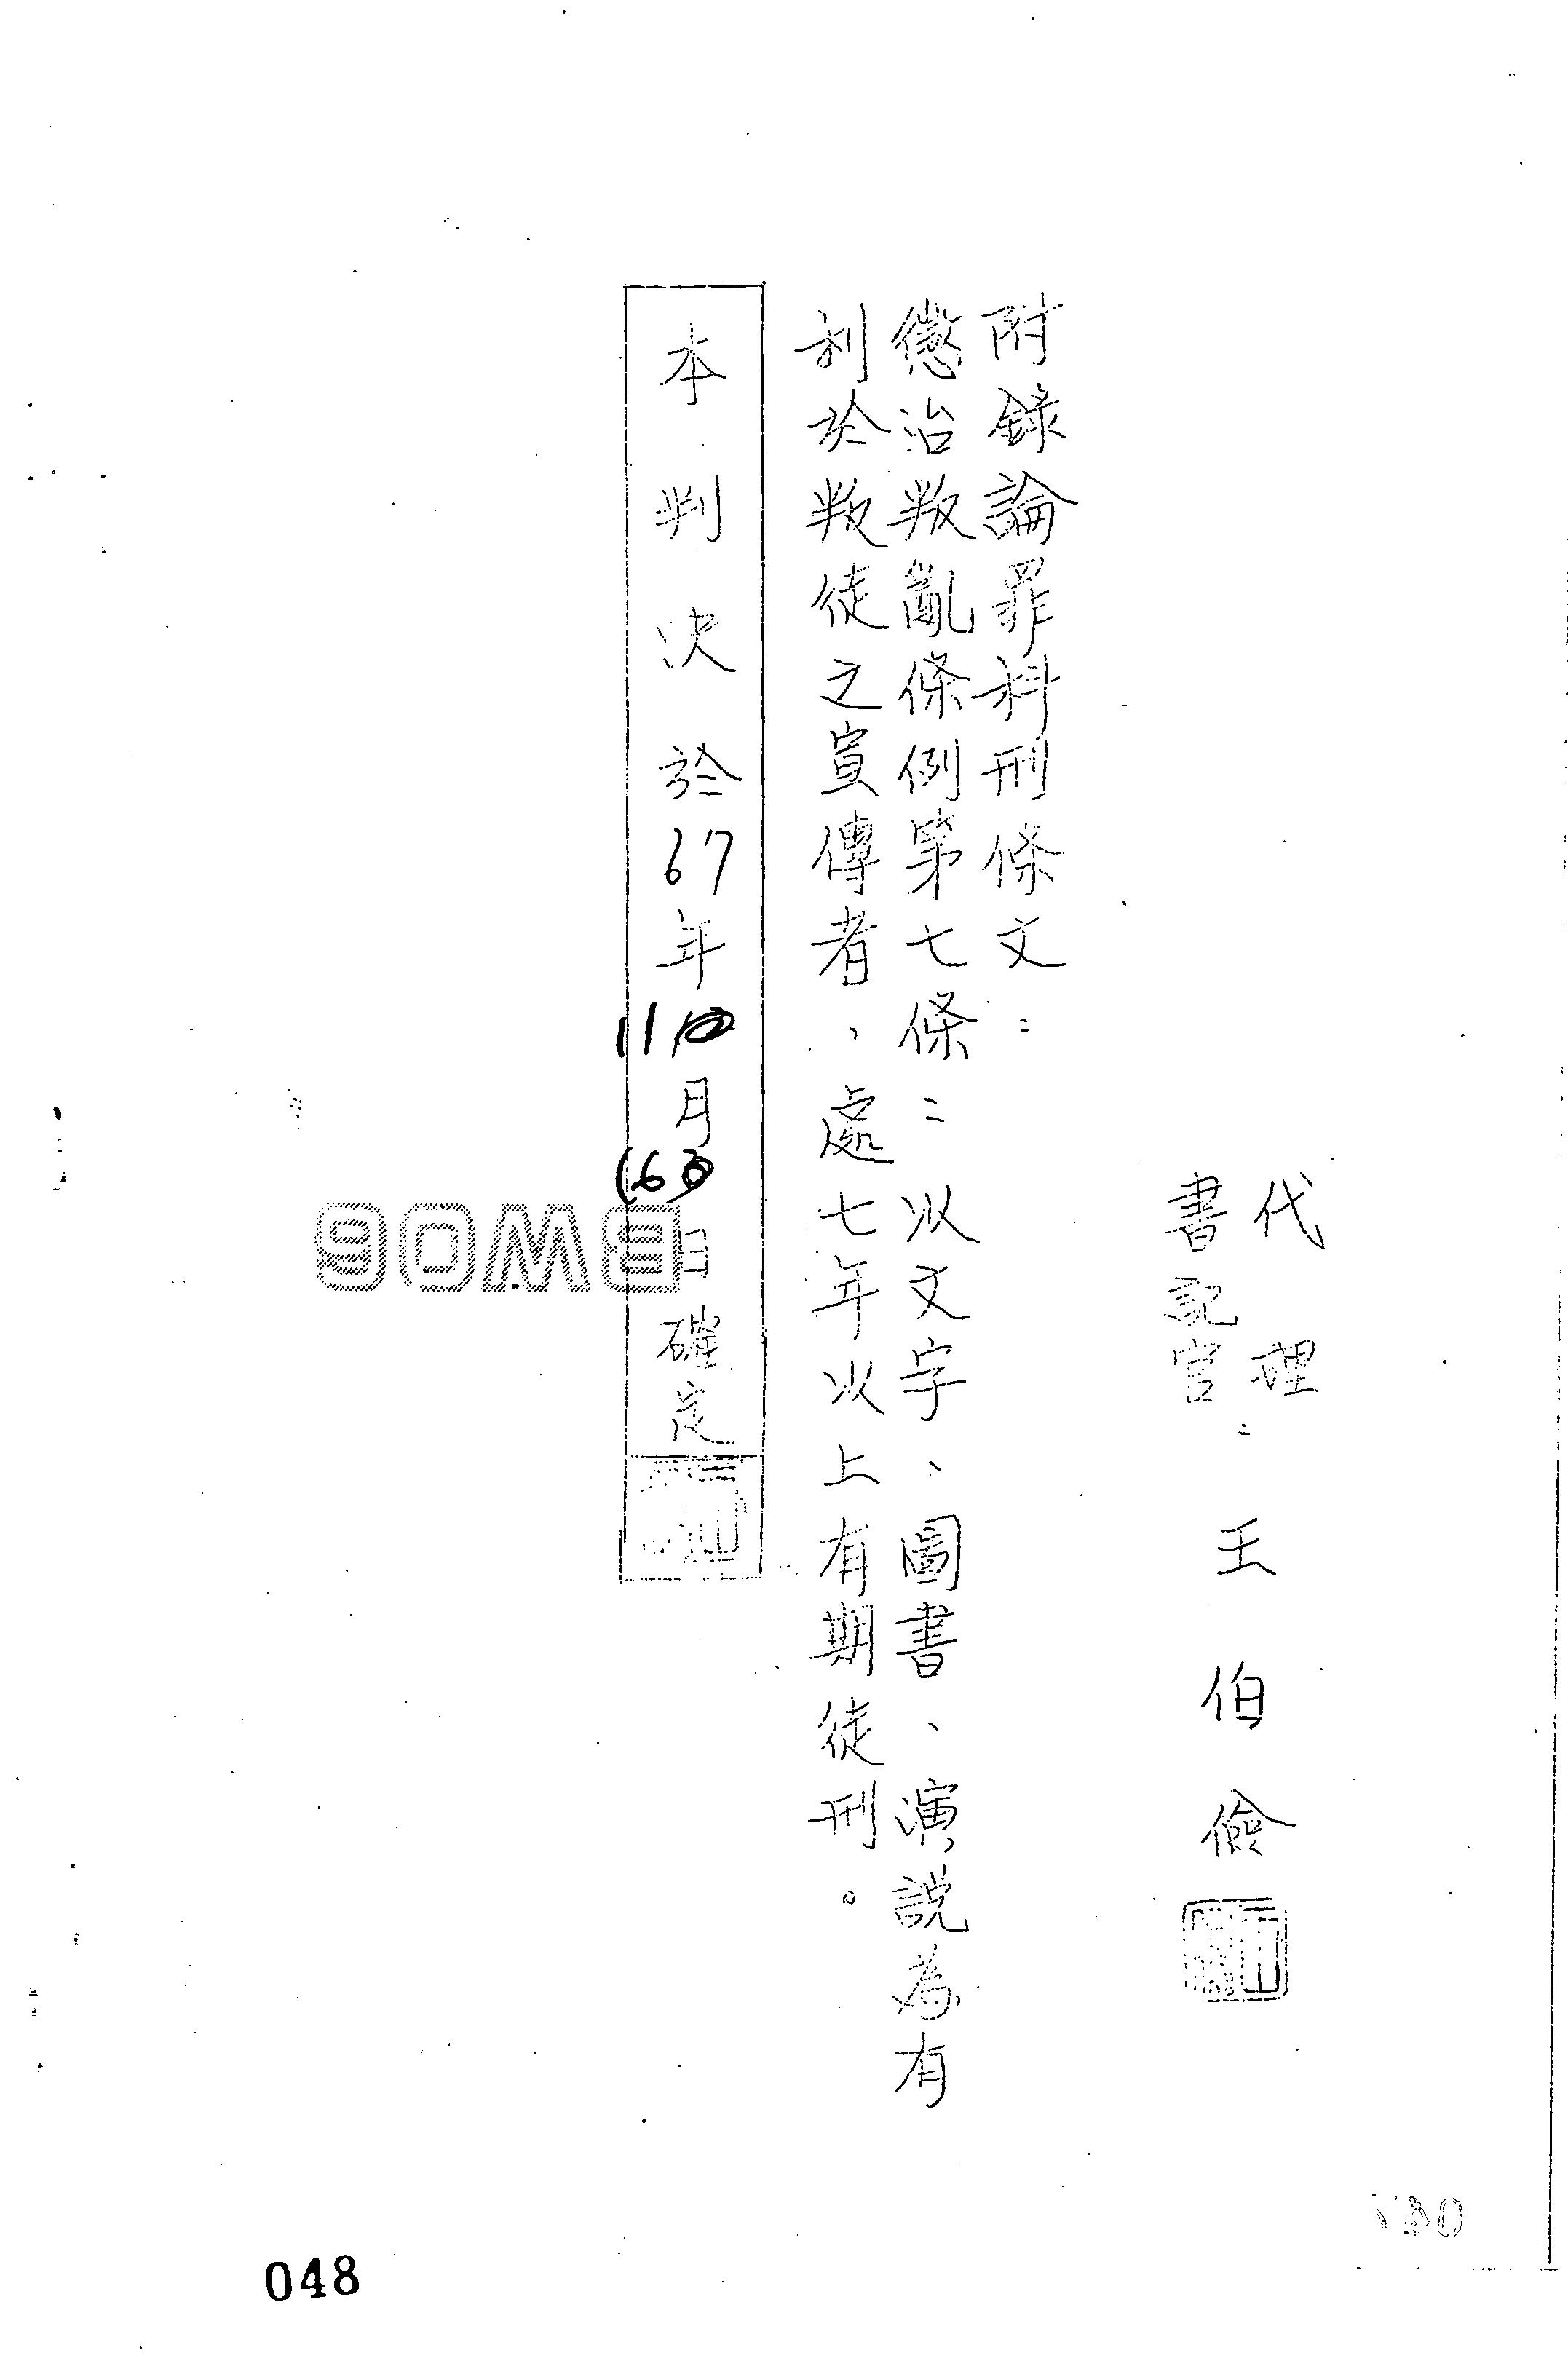 代理
書記官：王伯儉
附錄論罪科刑條文：
懲治叛亂條例第七條：以文字、圖書、演說為有
利於叛徒之宣傳者，處七年以上有期徒刑。
本判決於67年11月16日確定
90MB
048